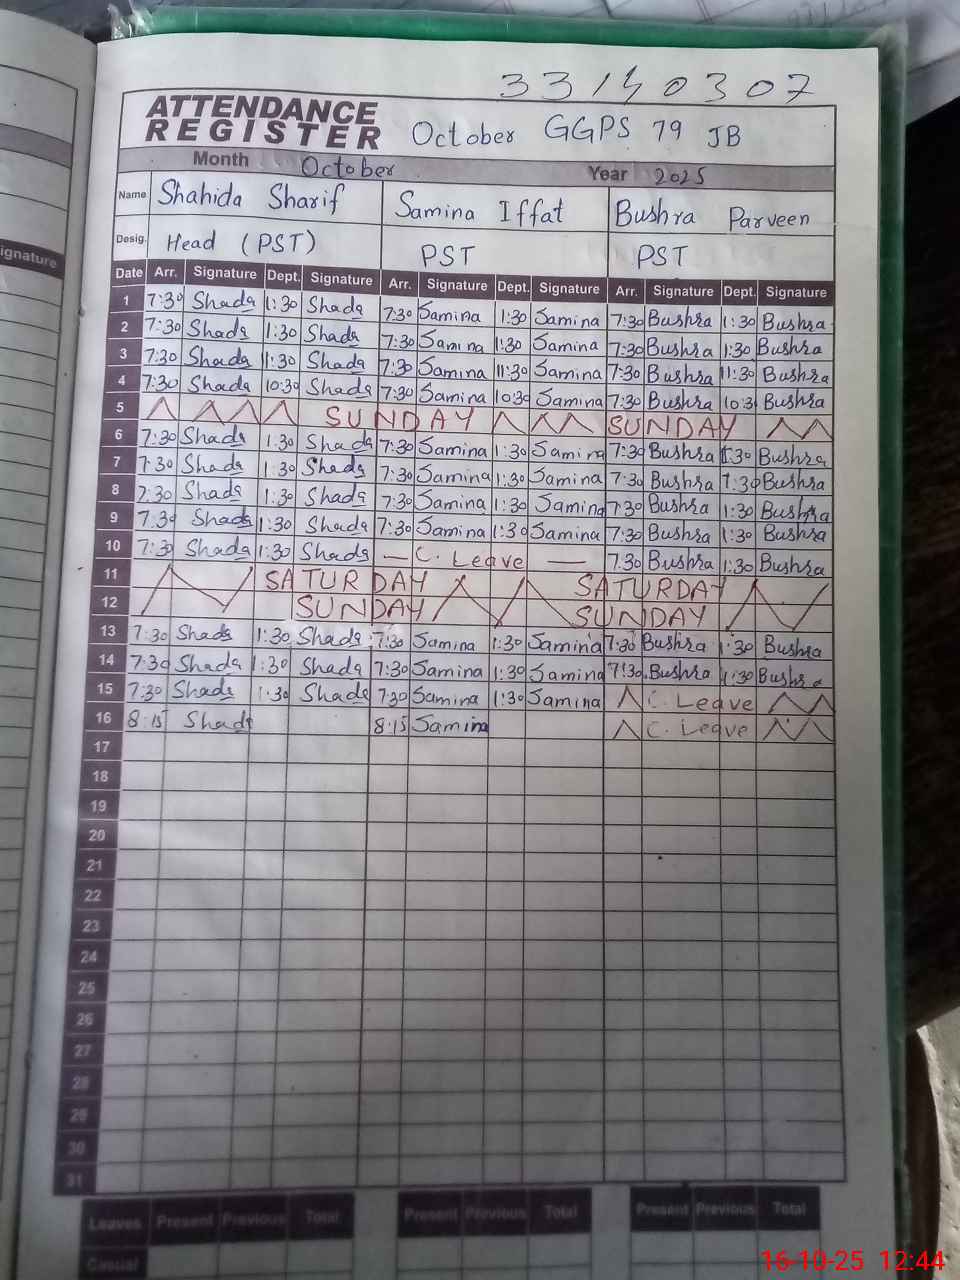 33140307
ATTENDANCE
REGISTER October GGPS 79 JB
Month October Year 2025
Name Shahida Sharif Samina Iffat Bushra Parveen
Desig. Head (PST) PST PST
ignature
Date Arr. Signature Dept. Signature Arr. Signature Dept. Signature Arr. Signature Dept. Signature
1 7:30 Shada 1:30 Shada 7:30 Samina 1:30 Samina 7:30 Bushra 1:30 Bushra
2 7:30 Shada 1:30 Shada 7:30 Samina 1:30 Samina 7:30 Bushra 1:30 Bushra
3 7:30 Shada 11:30 Shada 7:30 Samina 11:30 Samina 7:30 Bushra 11:30 Bushra
4 7:30 Shada 10:30 Shada 7:30 Samina 10:30 Samina 7:30 Bushra 10:3 Bushra
5 SUNDAY SUNDAY
6 7:30 Shada 1:30 Shada 7:30 Samina 1:30 Samina 7:30 Bushra 1:30 Bushra
7 7:30 Shada 1:30 Shada 7:30 Samina 1:30 Samina 7:30 Bushra 1:30 Bushra
8 7:30 Shada 1:30 Shada 7:30 Samina 1:30 Samina 7:30 Bushra 1:30 Bushra
9 7:30 Shada 1:30 Shada 7:30 Samina 1:30 Samina 7:30 Bushra 1:30 Bushra
10 7:30 Shada 1:30 Shada — C. Leave — 7:30 Bushra 1:30 Bushra
11 SATURDAY SATURDAY
12 SUNDAY SUNDAY
13 7:30 Shada 1:30 Shada 7:30 Samina 1:30 Samina 7:30 Bushra 1:30 Bushra
14 7:30 Shada 1:30 Shada 7:30 Samina 1:30 Samina 7:30 Bushra 1:30 Bushra
15 7:30 Shada 1:30 Shada 7:30 Samina 1:30 Samina C. Leave
16 8:15 Shada 8:15 Samina C. Leave
17
18
19
20
21
22
23
24
25
26
27
28
29
30
31
Leaves Present Previous Total Present Previous Total Present Previous Total
Casual
16-10-25 12:44